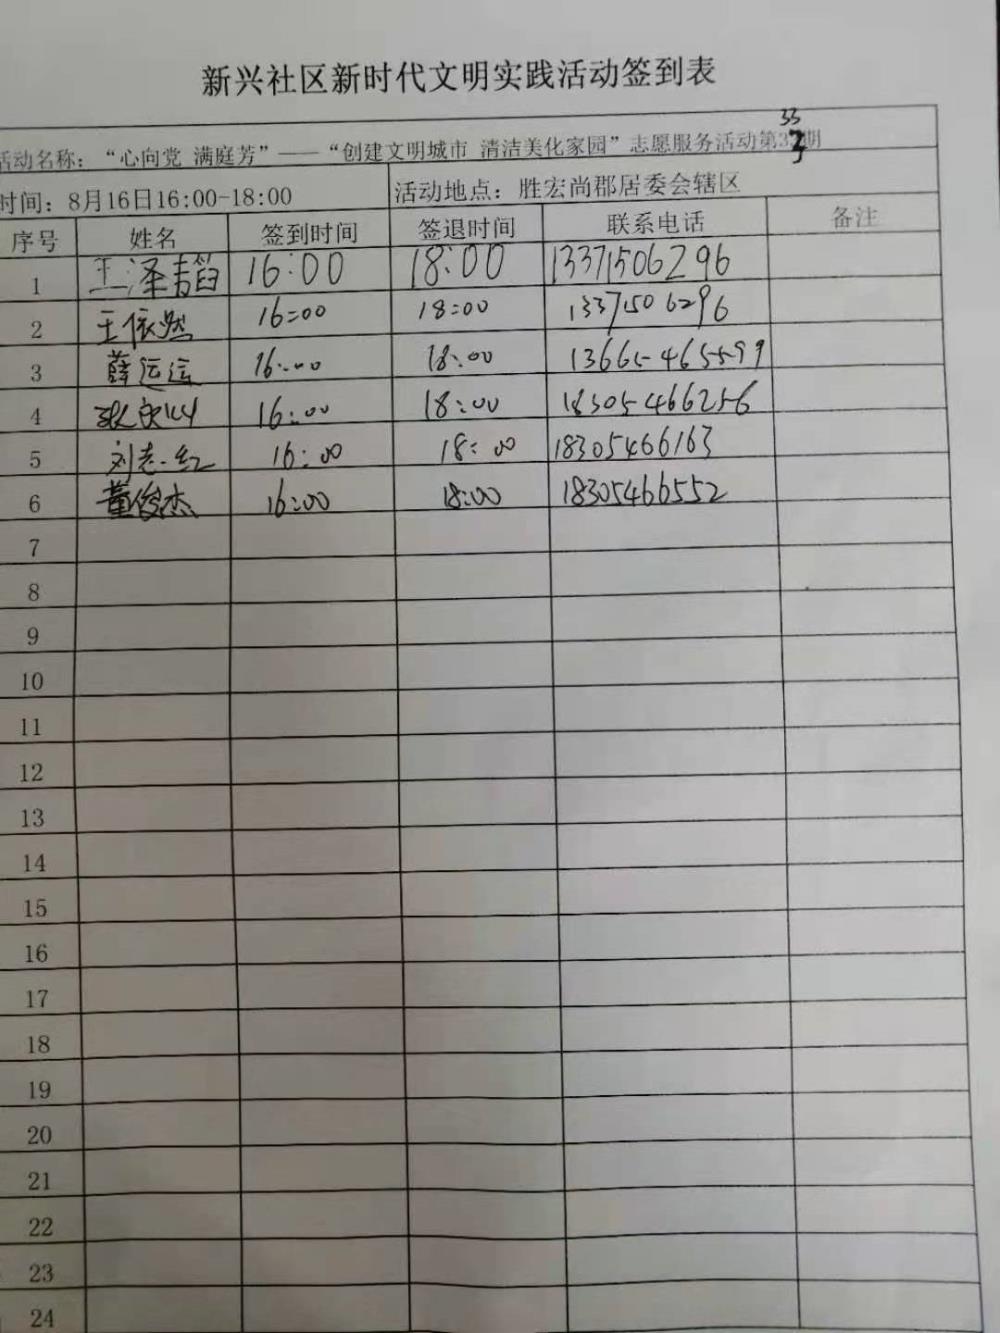 新兴社区新时代文明实践活动签到表
活动名称：“心向党 满庭芳”——“创建文明城市 清洁美化家园”志愿服务活动第33期
时间：8月16日16:00-18:00 活动地点：胜宏尚郡居委会辖区
序号 姓名 签到时间 签退时间 联系电话 备注
1 王泽 16:00 18:00 13371506296
2 王依然 16:00 18:00 13371506296
3 薛运运 16:00 18:00 13665465599
4 16:00 18:00 18305466256
5 刘志红 16:00 18:00 18305466163
6 董俊杰 16:00 18:00 18305466552
7
8
9
10
11
12
13
14
15
16
17
18
19
20
21
22
23
24